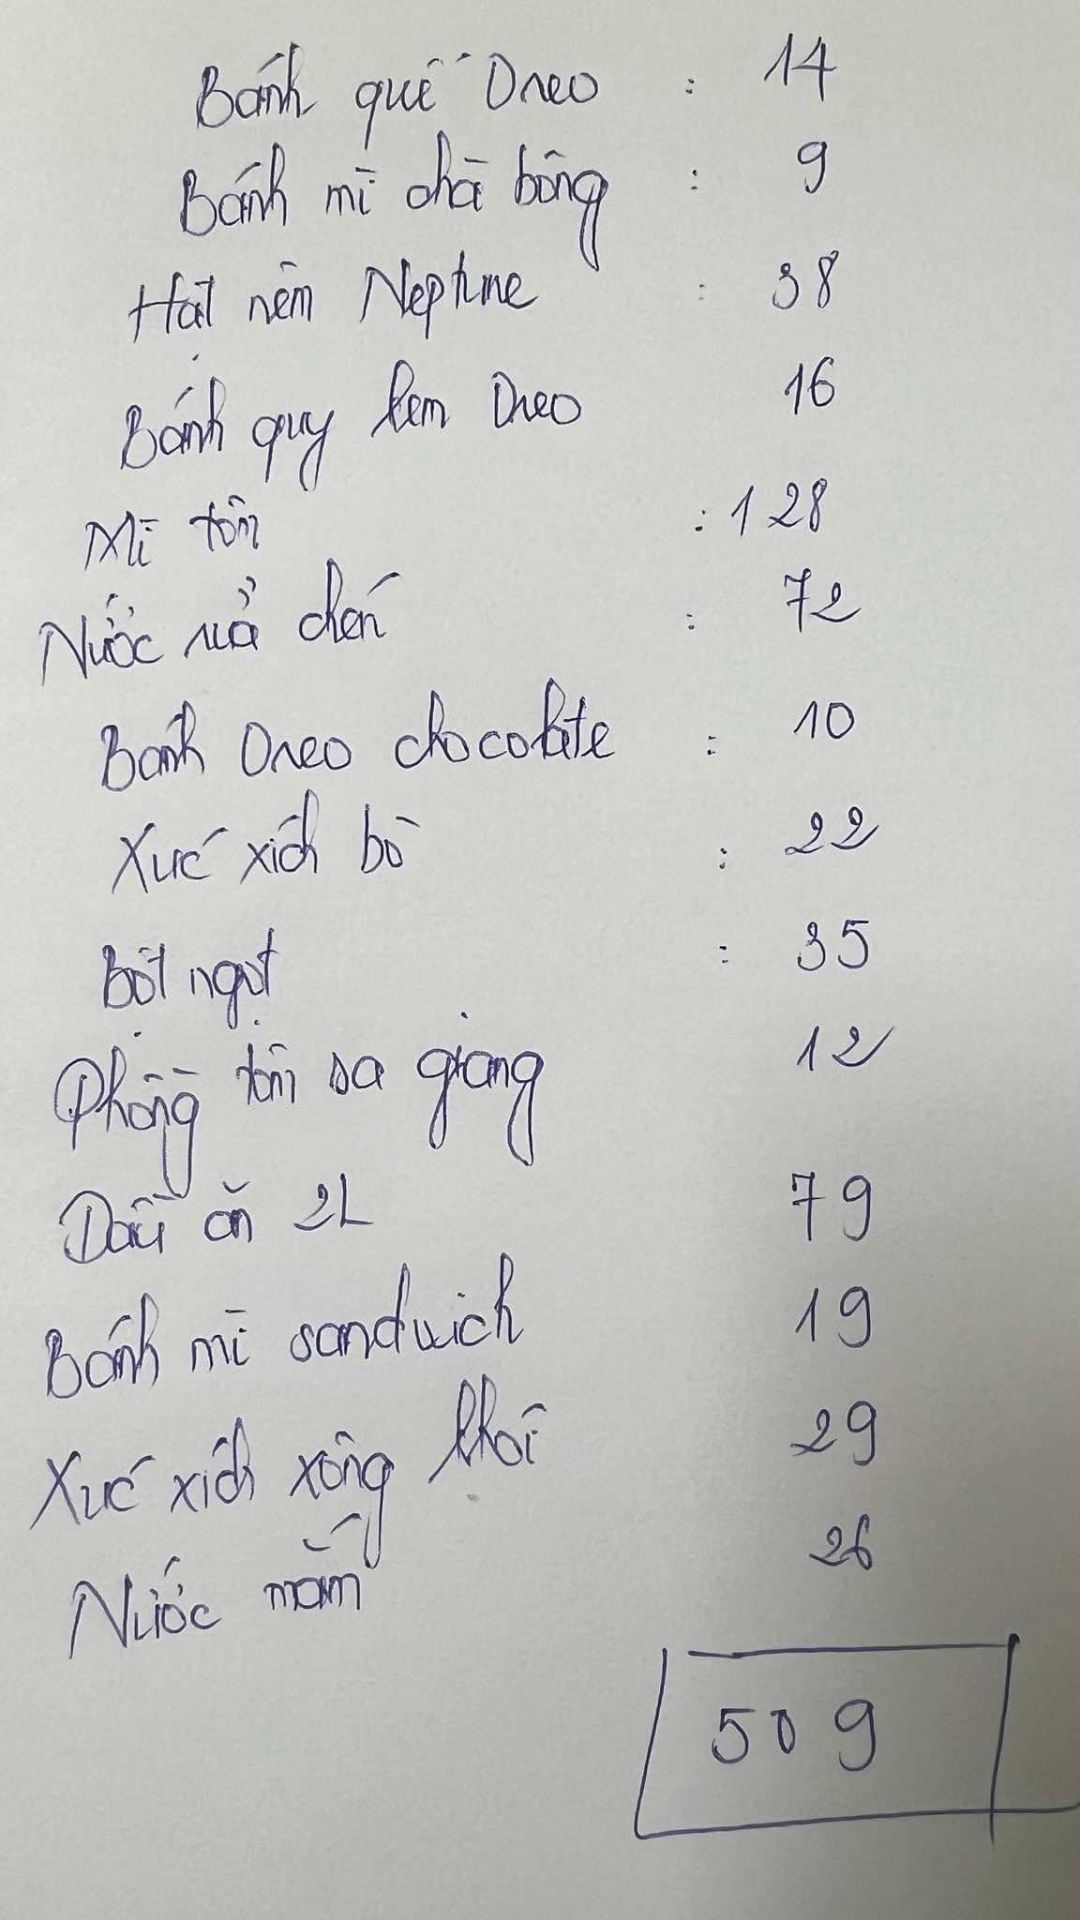 Bánh quế Oreo : 14
Bánh mì chà bông : 9
Hạt nêm Neptune : 38
Bánh quy kem Oreo 16
Mì tôm : 128
Nước rửa chén : 72
Bánh Oreo chocolate : 10
Xúc xích bò : 22
Bột ngọt : 35
Phồng tôm sa giang 12
Dầu ăn 2L 79
Bánh mì sandwich 19
Xúc xích xông khói 29
Nước mắm 26
509